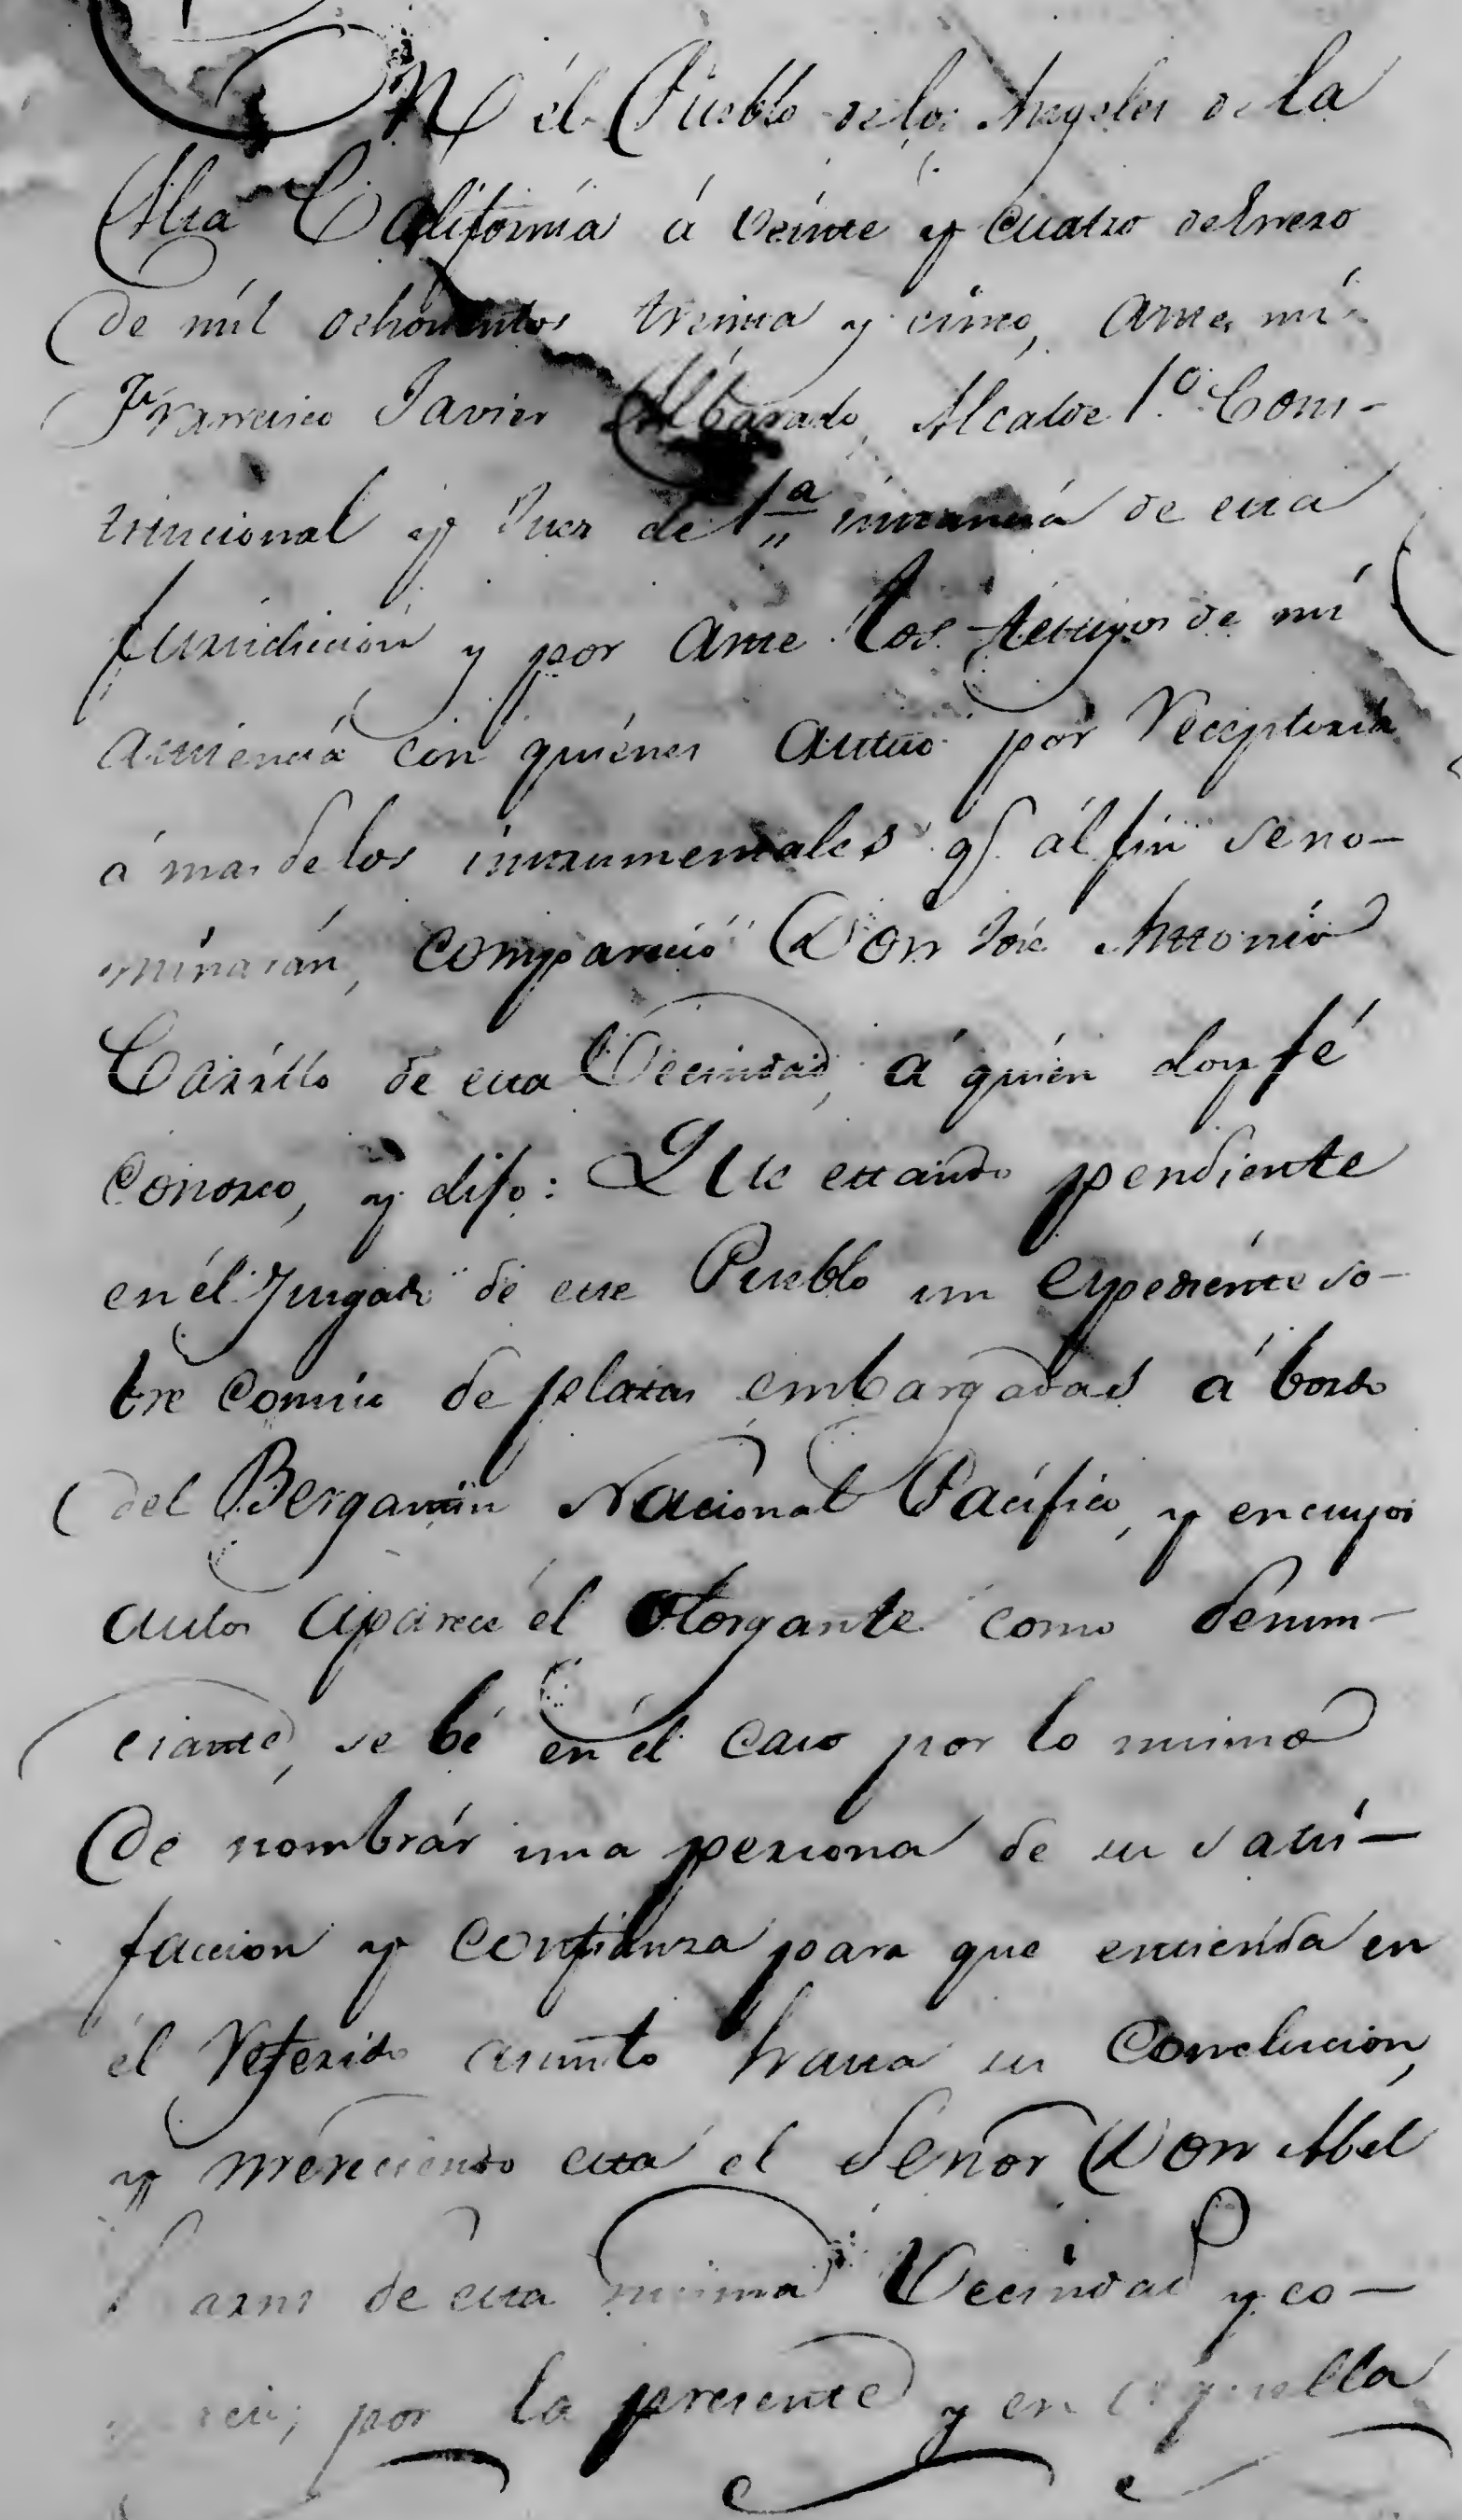 En él Pueblo de los Angeles de la
Alta California á veinte y cuatro de Enero
de mil ochocientos treinta y cinco, ante mi
Francisco Javier Albarado, Alcalde 1.º Cons-
titucional y Juez de 1.ª instancia de esta
jurisdiccion y por ante los testigos de mi
asistencia con quiénes autúo por receptoria
á mas de los instrumentales q.e ál fin se no-
minarán, compareció Don José Antonio
Carrillo de esta Vecindad, á quién doy fé
conosco, y dijo: Que estando pendiente
en él Juzgado de este Pueblo un expediente so-
bre comiso de platas embargadas á bordo
del Bergantin Nacional Pacífico, y en cuyos
autos aparece él otorgante como denun-
ciante, se bé en él caso por lo mismo
de nombrár una persona de su satis-
faccion y confianza para que entienda en
él referido asunto hasta su conclucion,
y mereciendo esta el Señor Don Abel
Stearns de esta misma Vecindad y co-
por la presente y en aquella